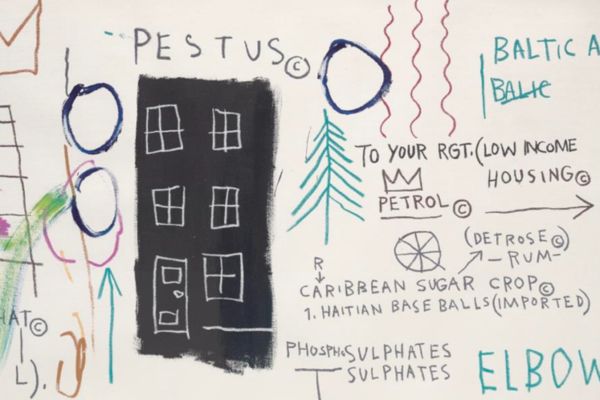 PESTUS©
BALTIC A
BALTIC
TO YOUR RGT. (LOW INCOME
HOUSING©
PETROL ©
(DETROSE©)
—RUM—
R
CARIBBEAN SUGAR CROP©
1. HAITIAN BASE BALLS (IMPORTED)
HAT©
L).
PHOSPH. SULPHATES
SULPHATES
ELBOW